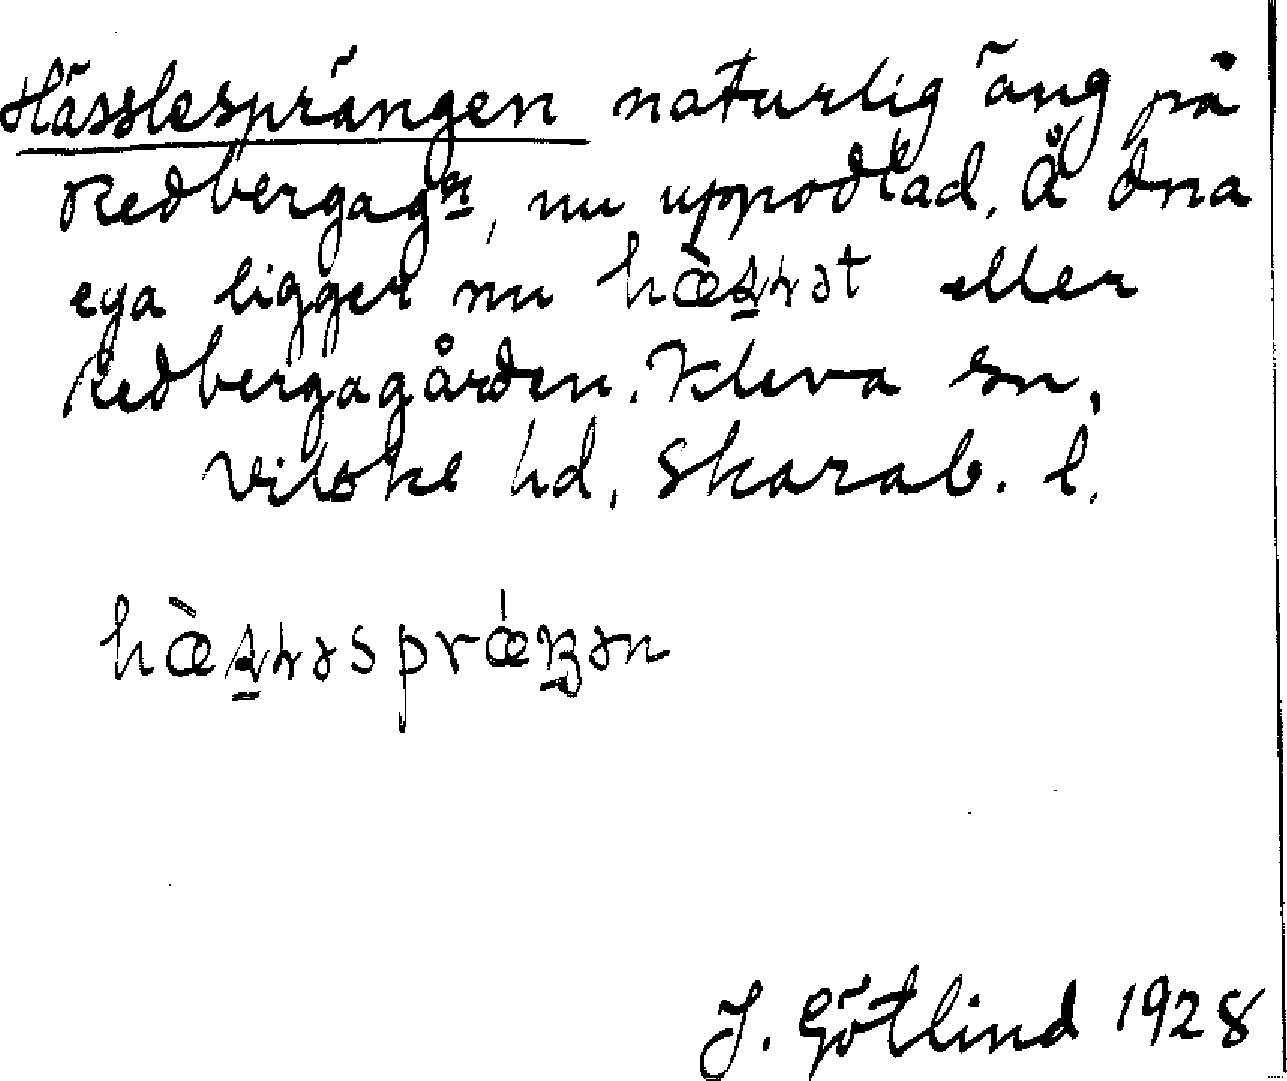 Hässlesprängen naturlig äng på
Redbergagn, nu uppodlad. Å dna
ega ligger nu eller
Redbergagården. Kleva sn,
Vilske hd, Skarab. l.
J. Götlind 1928